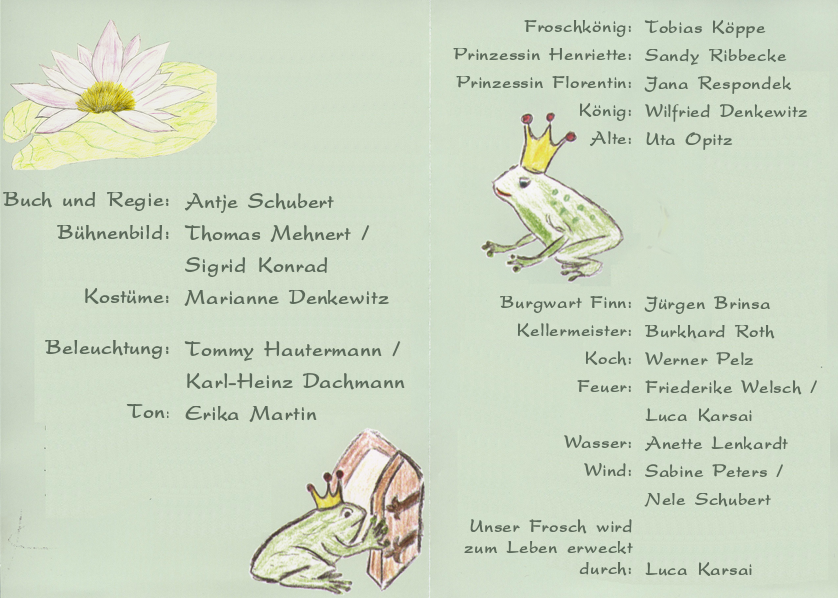 Buch und Regie: Antje Schubert
Bühnenbild: Thomas Mehnert /
Sigrid Konrad
Kostüme: Marianne Denkewitz
Beleuchtung: Tommy Hautermann /
Karl-Heinz Dachmann
Ton: Erika Martin
Froschkönig: Tobias Köppe
Prinzessin Henriette: Sandy Ribbecke
Prinzessin Florentin: Jana Respondek
König: Wilfried Denkewitz
Alte: Uta Opitz
Burgwart Finn: Jürgen Brinsa
Kellermeister: Burkhard Roth
Koch: Werner Pelz
Feuer: Friederike Welsch /
Luca Karsai
Wasser: Anette Lenkardt
Wind: Sabine Peters /
Nele Schubert
Unser Frosch wird
zum Leben erweckt
durch: Luca Karsai